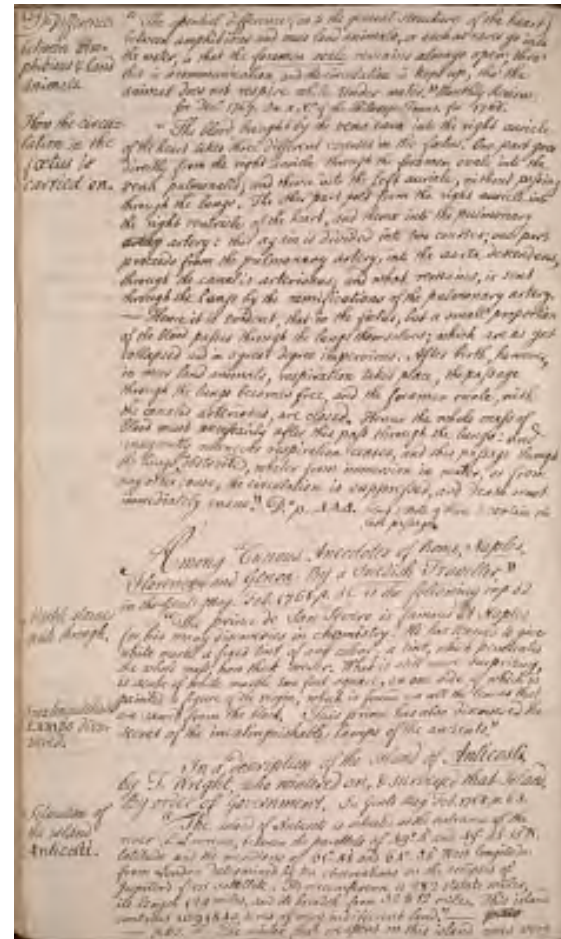 Difference
between Am-
phibious & Land
Animals.
"The essential difference (as to the general structure of the heart)
between amphibious and mere land animals, or such as never go into
the water, is that the foramen ovale remains always open; thro
this a communication, and the circulation is kept up, tho' the
animal does not respire while under water." Monthly Review
for 1767. in a of the Philosop: Trans. for 1766.
How the circu-
lation in the
fœtus is
carried on.
"The blood brought by the vena cava into the right auricle
of the heart takes three different courses in the fœtus. One part goes
directly from the right auricle through the foramen ovale into the
vena pulmonalis, and thence into the left auricle, without passing
through the lungs. The other part goes from the right auricle into
the right ventricle of the heart, and thence into the pulmonary
artery: this again is divided into two courses; one part
proceeds from the pulmonary artery, into the aorta descendens,
through the canalis arteriosus; and what remains, is sent
through the lungs by the ramifications of the pulmonary artery.
— Hence it is evident, that in the fœtus, but a small proportion
of the blood passes through the lungs themselves; which are as yet
collapsed and in a great degree impervious. After birth, however,
in mere land animals, respiration takes place, the passage
through the lungs becomes free, and the foramen ovale, with
the canalis arteriosus, are closed. Hence the whole mass of
blood must necessarily after this pass through the lungs: and
respiration ceases, and this passage through
the lungs whether from immersion in water, or from
any other cause, the circulation is suppressed, and death must
immediately ensue." D.o p.
Among "Curious Anecdotes of Rome, Naples,
Florence, and Genoa. By a Swedish Traveller,"
in the Gents Mag. Feb. 1768 p. is the following
Marble stained
quite through.
"The prince de San Severo is famous at Naples
for his many discoveries in chemistry. He has to give
white marble a fixed tint of any colour, a tint, which penetrates
the whole mass, how thick soever. What is still more surprizing,
is a of white marble two feet square, on one side of which is
painted a figure of the virgin, which is found on all the leaves that
are sawn from the block. This prince has also discovered the
secret of the inextinguishable lamps of the ancients."
Inextinguishable
Lamps disco-
vered.
In a "Description of the island of Anticosti,
by T. Wright, who wintered on, & surveyed that Island
By order of Government. In Gents Mag. Feb. 1768 p.
Situation of
the island
Anticosti.
"The island of Anticosti is situated at the entrance of the
river St. Lawrence, between the parallels of
latitude and the meridians of West longitude
from London determined by observations on the eclipses of
Jupiter's first satellite. Its circumference is 282 statute miles,
its length miles, and its breadth from to miles. This island
contains acres of very indifferent land." —